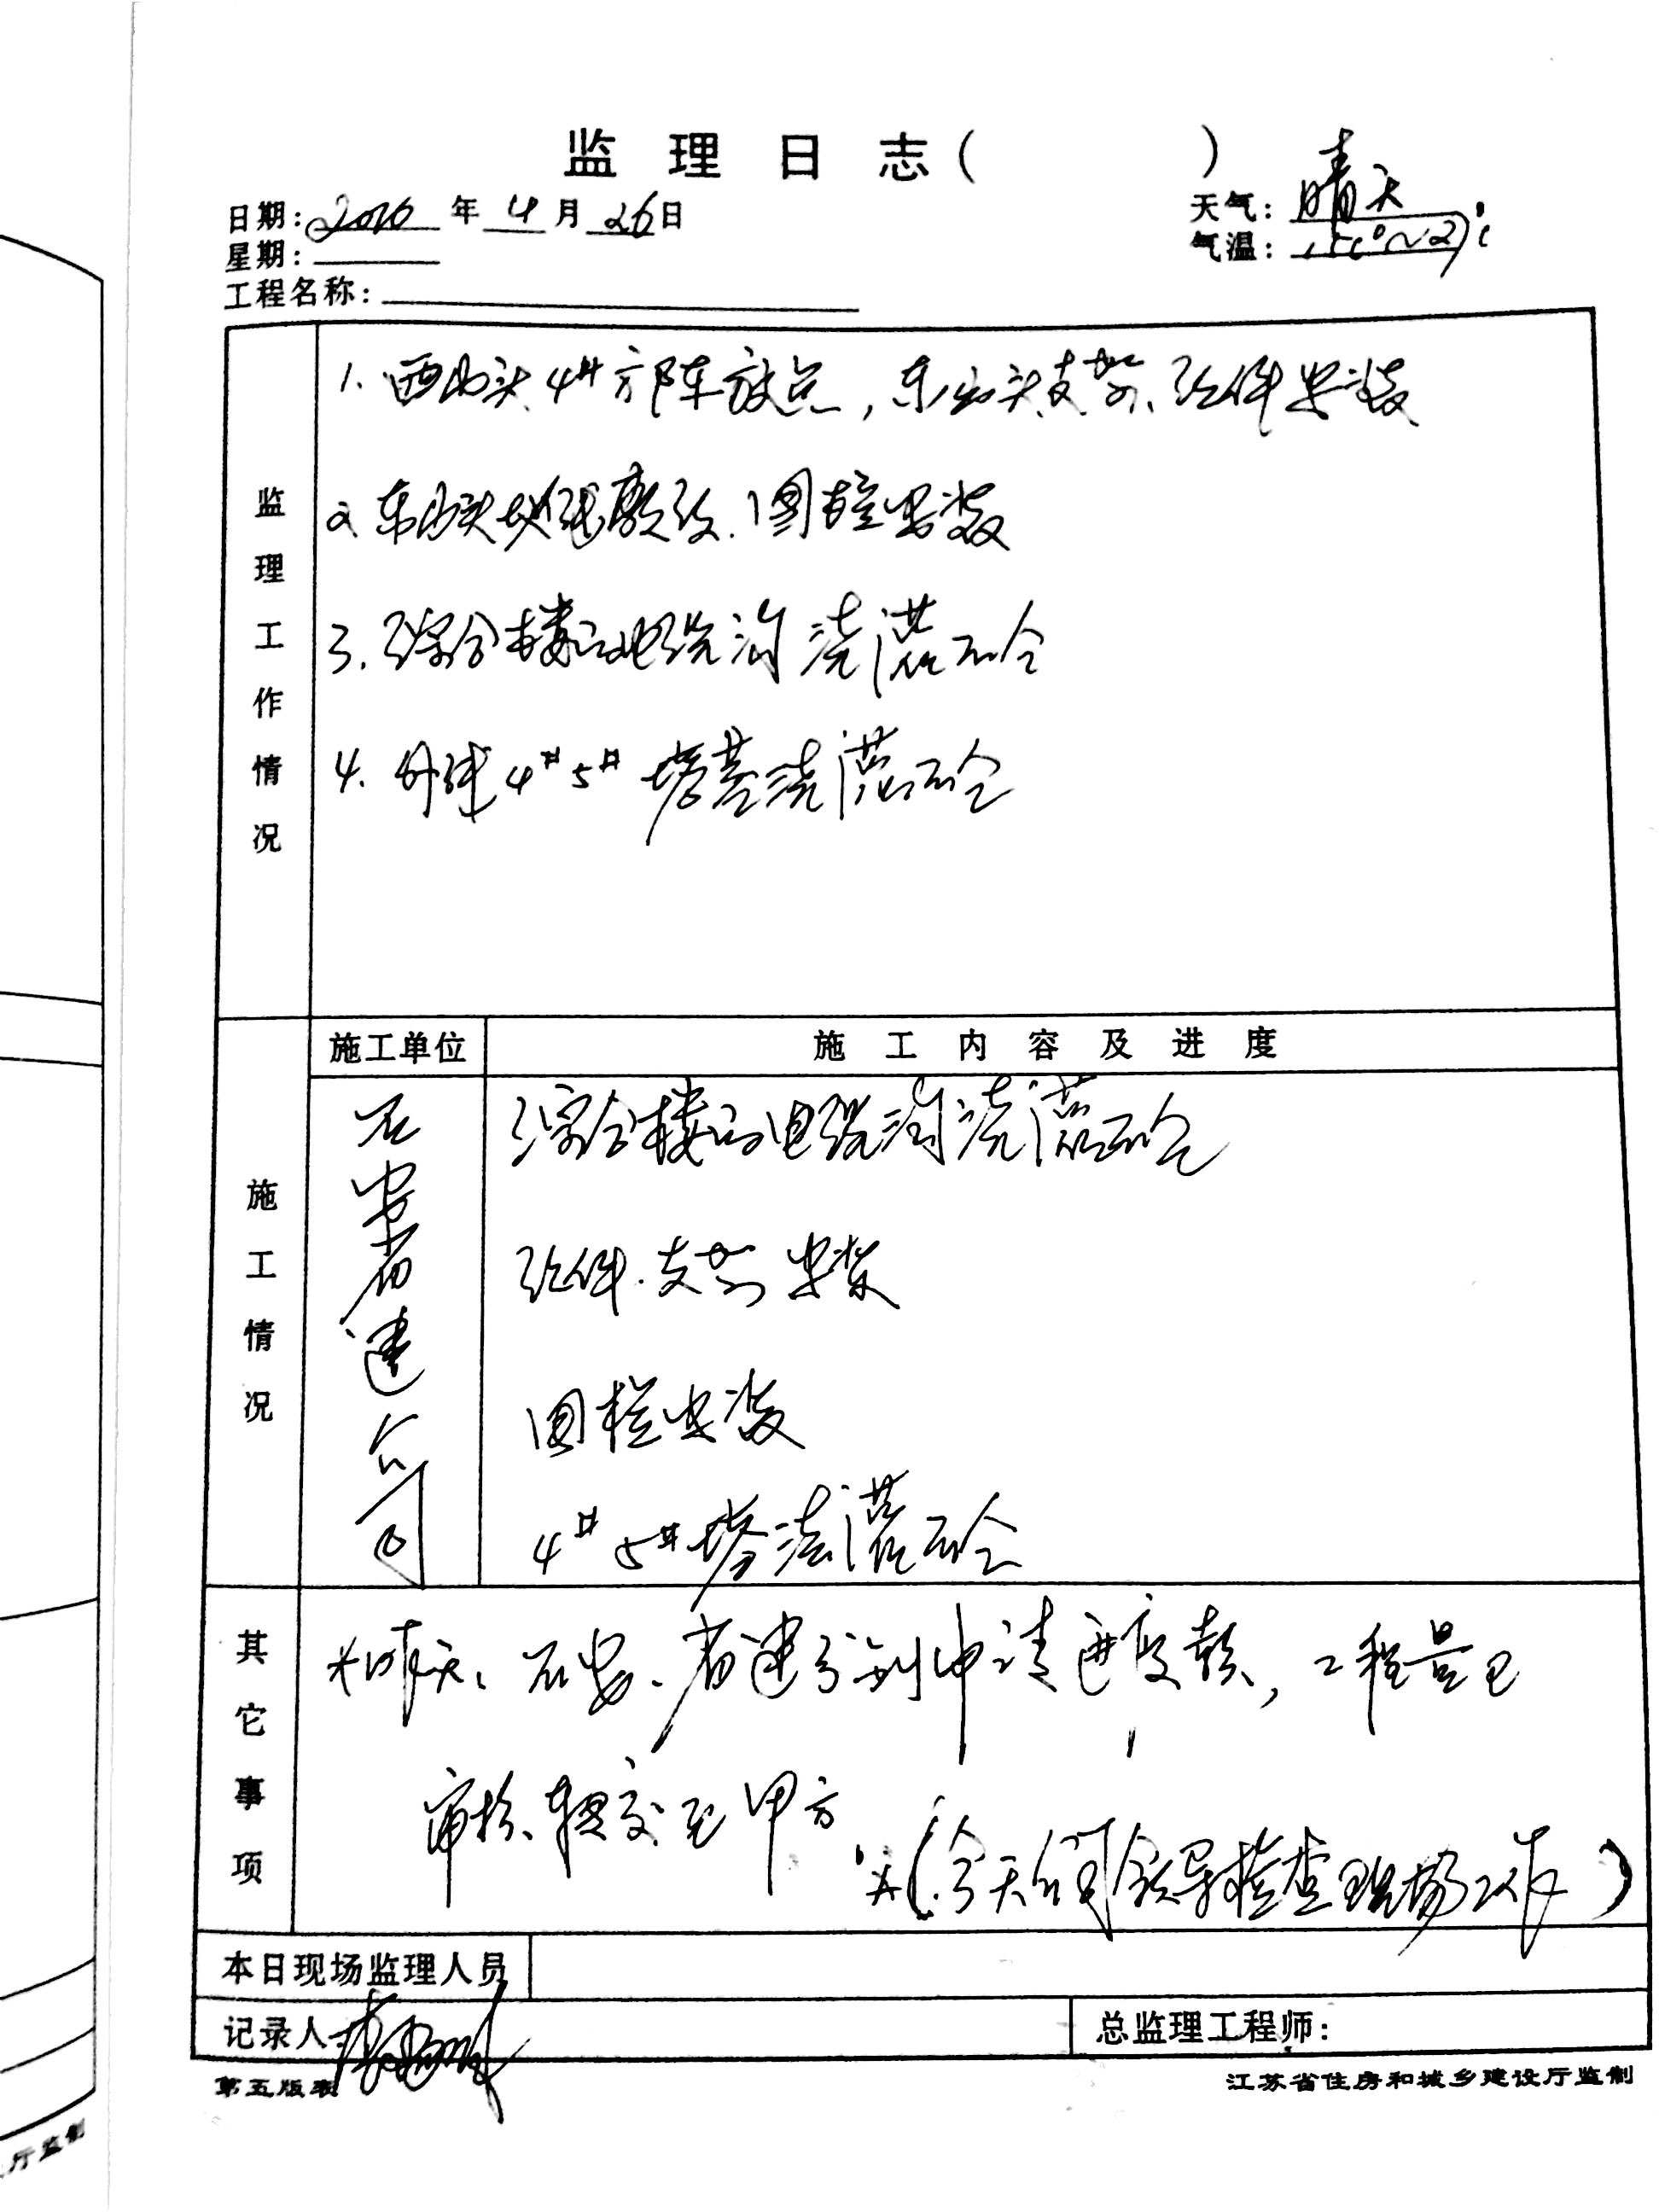 监 理 日 志 （ ）
日期： 2016 年 4 月 26 日
天气： 晴天
星期：
气温： 15c°~2
工程名称：
监理工作情况
1. 西山头 4# 方阵放点，东山头支架、组件安装
2. 东山头 围栏安装
3. 综合楼 电缆沟浇灌砼
4. 外线 4# 5# 塔基浇灌砼
施工情况
施工单位
施 工 内 容 及 进 度
石安省建公司
综合楼 电缆沟浇灌砼
组件．支架安装
围栏安装
4# 5# 塔浇灌砼
其它事项
昨天：石安、省建分别申请进度款，工程量已
审核、提交至甲方
（今天 领导检查现场工作）
本日现场监理人员
记录人
总监理工程师：
第五版表
江苏省住房和城乡建设厅监制
厅监制